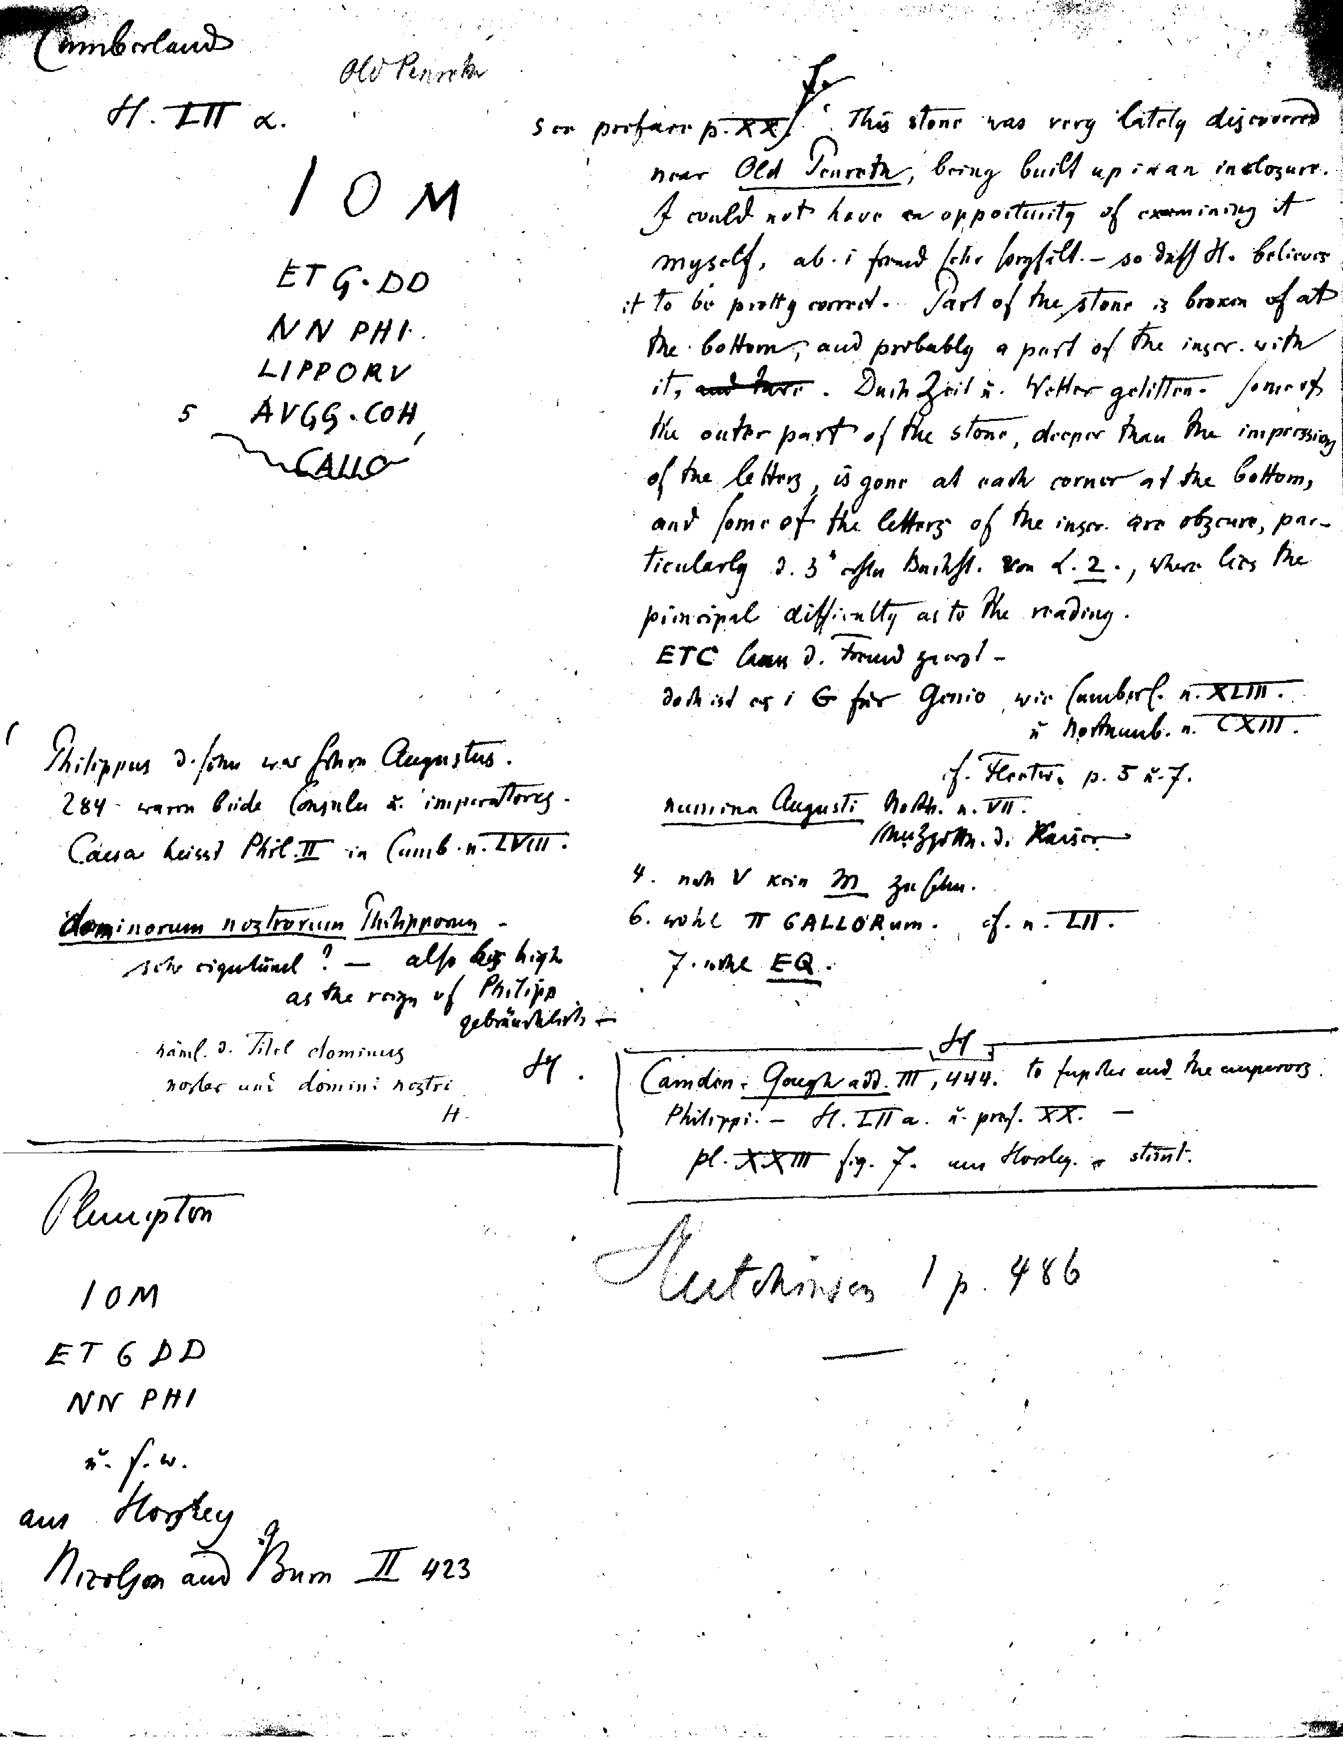 Cumberland
Old Penreth
H. LII a.
I O M
ET G·DD
NN PHI·
LIPPORV
5 AVGG·COH
GALLO
see preface p. XX. This stone was very lately discovered
near Old Penreth, being built up in an inclozure.
I could not have an opportunity of examining it
myself, ab. i freund sehr sorgfält. – so dass H. believes
it to be pretty correct. Part of the stone is broken of at
the bottom, and probably a part of the inscr. with
it, and have. Duch Zeit u. Wetter gelitten. Some of
the outer part of the stone, deeper than the impression
of the letters, is gone at each corner at the bottom,
and some of the letters of the inscr. are obscure, par-
ticularly d. 3 ersten Buchst. von L. 2., where lies the
principal difficulty as to the reading.
ETC d. Freund
doch ist es i G für Genio, wie Cumberl. n. XLIII.
ŭ Northumb. n. CXIII.
cf. p. 5 ŭ. 7.
numina Augusti North. n. VII.
d. Kaiser
4. nch V kein M zu sehn.
6. wohl II GALLORum. cf. n. LII.
7. wohl EQ.
Philippus d. sohn war schon Augustus.
284 waren beide Consuln ŭ. imperatores.
Caesar heisst Phil. II in Cumb. n. LVIII.
dominorum nostrorum Philipporum –
sehr ? – also high
as the reign of Philipp
gebräuchlich –
näml. d. Titel dominus
noster und domini nostri
H.
H.
H
Camden-Gough add. III, 444. to Jupiter and the emperors
Philippi. – H. LII a. ŭ. pref. XX. –
pl. XXIII fig. 7. aus Horsley. stimt.
Plumpton
IOM
ET G DD
NN PHI
ŭ. s. w.
aus Horsley
Nicolson and Burn II 423
Hutchinson I p. 486